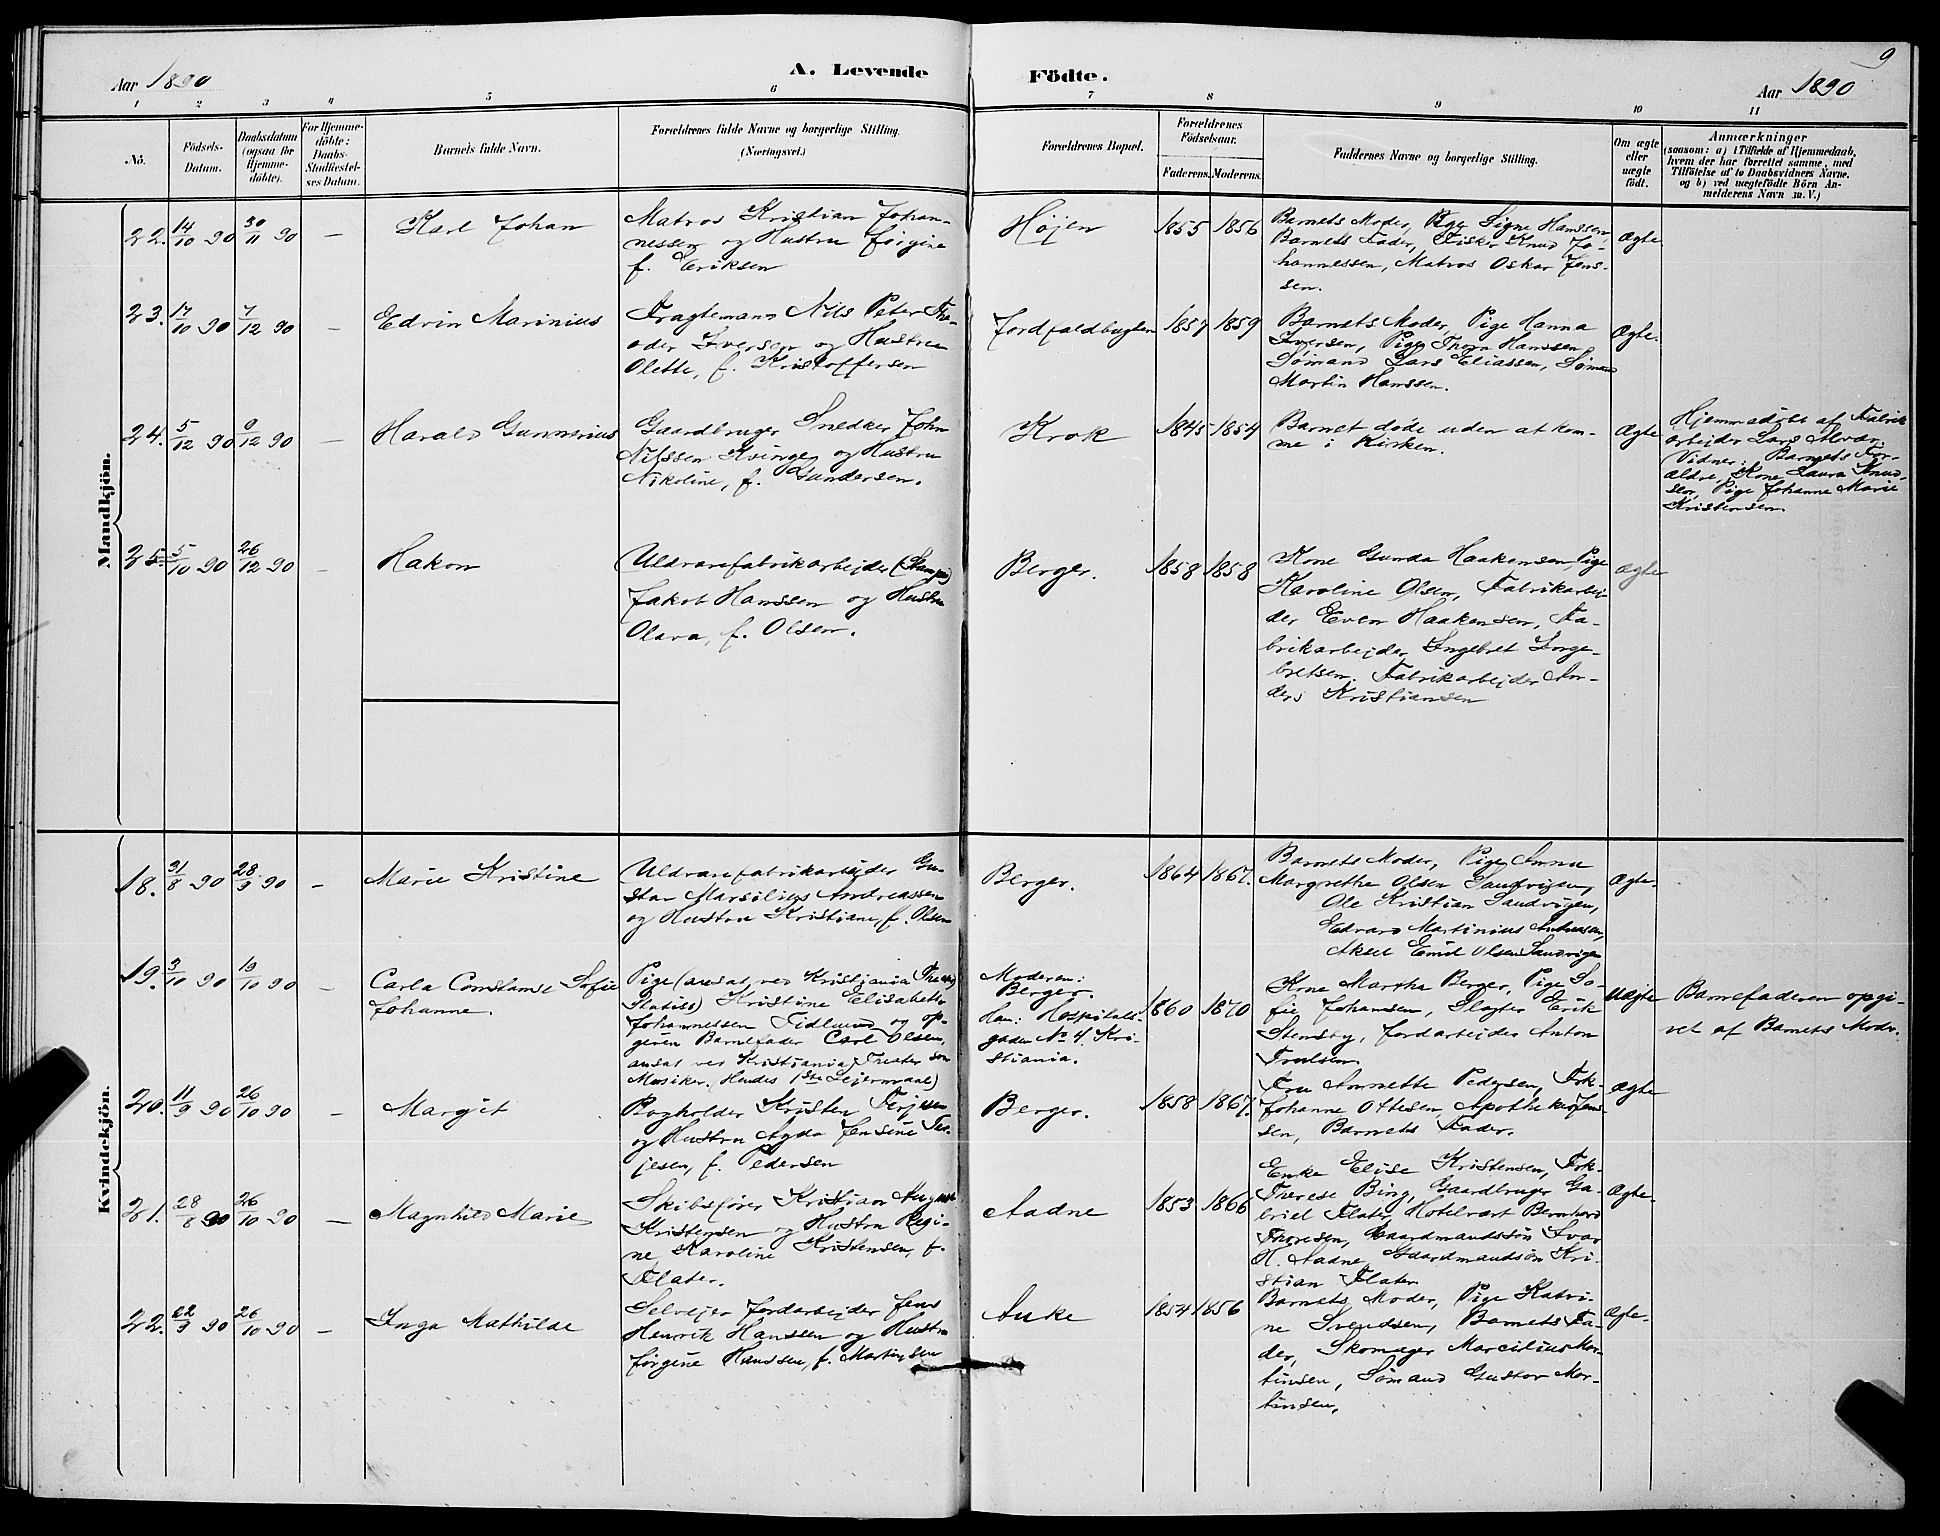 Aar 1890
A. Levende Födte.
Aar 1890
9
1 2 3 4 5 6 7 8 9 10 11
No.
Födsels-
Datum.
Daabsdatum
(ogsaa for
Hjemme-
döbte).
For Hjemme-
döbte:
Daabs-
Stadfæstel-
ses Datum.
Barnets fulde Navn.
Forældrenes fulde Navne og borgerlige Stilling.
(Næringsvei.)
Forældrenes Bopæl.
Forældrenes
Födselsaar.
Faderens. Moderens.
Faddernes Navne og borgerlige Stilling.
Om ægte
eller
uægte
födt.
Anmærkninger
(saasom: a) i Tilfælde af Hjemmedaab,
hvem der har forrettet samme, med
Tilföielse af to Daabsvidners Navne.
og b) ved uægtefödte Börn An-
melderens Navn m.V.)
Mandkjön.
22. 14/10 90 30/11 90 —
Karl Johan
Matros Kristian Johan-
nessen og Hustru Jørgine
f. Eriksen
Højen
1855 1856
Barnets Moder, Pige Signe Hanssen,
Barnets Fader, Fisker Knud Jo-
hannessen, Matros Oskar Jens-
sen.
Ægte
23. 17/10 90 7/12 90 —
Edvin Marinius
Fragtemand Nils Peter Theo-
dor Iversen og Hustru
Olette, f. Kristoffersen
Jordfaldbugten
1857 1859
Barnets Moder, Pige Hanna
Iversen, Pige Thora Hanssen
Sømand Lars Eliassen, Sømand
Martin Hanssen.
Ægte.
24. 5/12 90 9/12 90 —
Harald Gunnerius
Gaardbruger Snedker John
Nilssen Kvinge og Hustru
Nikoline, f. Gundersen.
Krok
1845 1854
Barnet døde uden at kom-
me i Kirken.
Ægte
Hjemmedøbt af Fabrik
arbejder Lars
Vidner: Barnets For-
ældre, Kone Laura Knud-
sen, Pige Johanne Marie
Kristensen.
25. 5/10 90 26/12 90 —
Hakon
Uldvarefabrikarbejder (Stamper)
Jakob Hanssen og Hustru
Olava, f. Olsen.
Berger.
1858 1858
Kone Gunda Haakensen, Pige
Karoline Olsen, Fabrikarbej-
der Even Haakensen, Fa-
brikarbejder Ingebret Inge-
bretsen. Fabrikarbejder An-
ders Kristiansen
Ægte
Kvindekjön.
18. 31/8 90 28/9 90 —
Marie Kristine
Uldvarefabrikarbejder Gu-
stav Marsilius Andreassen
og Hustru Kristiane, f. Olsen
Berger.
1864 1867.
Barnets Moder, Pige Anna
Margrethe Olsen Sandvigen,
Ole Kristian Sandvigen,
Edvard Martinius Antonsen,
Aksel Emil Olsen Sandvigen
Ægte.
19. 3/10 90 19/10 90 —
Carla Constanse Sofie
Johanne.
Pige (ansat ved Kristiania Theater
Statist) Kristine Elisabeth
Johannessen Fidlund og op-
given Barnefader Carl Olsen,
ansat ved Kristiania Theater som
Musiker. (Hendes 1ste Lejermaal)
Moderen:
Berger.
Han: Hospitals-
gaden No 4, Kri-
stiania.
1860 1870
Kone Martha Berger, Pige So-
fie Johansen, Slagter Erik
Stensby, Jordarbejder Anton
Trulsen.
Uægte
Barnefaderen opgi-
vet af Barnets Moder.
20. 11/9 90 26/10 90 —
Margit
Bogholder Kristen Terjesen
og Hustru Agda Jensine Ter-
jesen, f. Pedersen
Berger.
1858 1867.
Fru Annette Pedersen, Frk.
Johanne Ottesen, Apotheker Jens-
sen, Barnets Fader.
Ægte
21. 28/8 90 26/10 90 —
Magnhild Marie
Skibsfører Kristian August
Kristensen og Hustru Regi-
ne Karoline Kristensen, f.
Flater.
Aadne
1853 1866
Enke Elise Kristensen, Frk.
Therese Bing, Gaardbruger Ga-
briel Flater, Hotelvært Bernhard
Thoresen, Gaardmandssøn Ivar
H. Aadne, Gaardmandssøn Kri-
stian Flater
Ægte.
22. 22/9 90 26/10 90 —
Inga Mathilde
Selvejer Jordarbejder Jens
Henrik Hanssen og Hustru
Jørgine Hanssen, f. Martinsen
Anke
1854 1856
Barnets Moder, Pige Katri-
ne Svendsen, Barnets Fa-
der, Skomager Marcilius Mar-
tinsen, Sømand Gustav Mar-
tinsen.
Ægte.